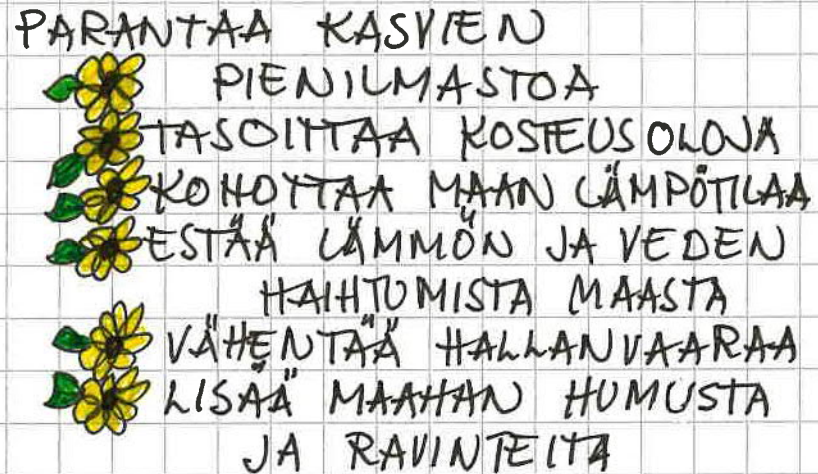 PARANTAA KASVIEN
PIENILMASTOA
TASOITTAA KOSTEUSOLOJA
KOHOTTAA MAAN LÄMPÖTILAA
ESTÄÄ LÄMMÖN JA VEDEN
HAIHTUMISTA MAASTA
VÄHENTÄÄ HALLANVAARAA
LISÄÄ MAAHAN HUMUSTA
JA RAVINTEITA